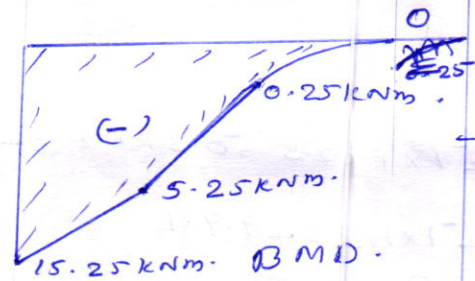 0
0.25 kNm.
(-)
5.25 kNm.
15.25 kNm. BMD.